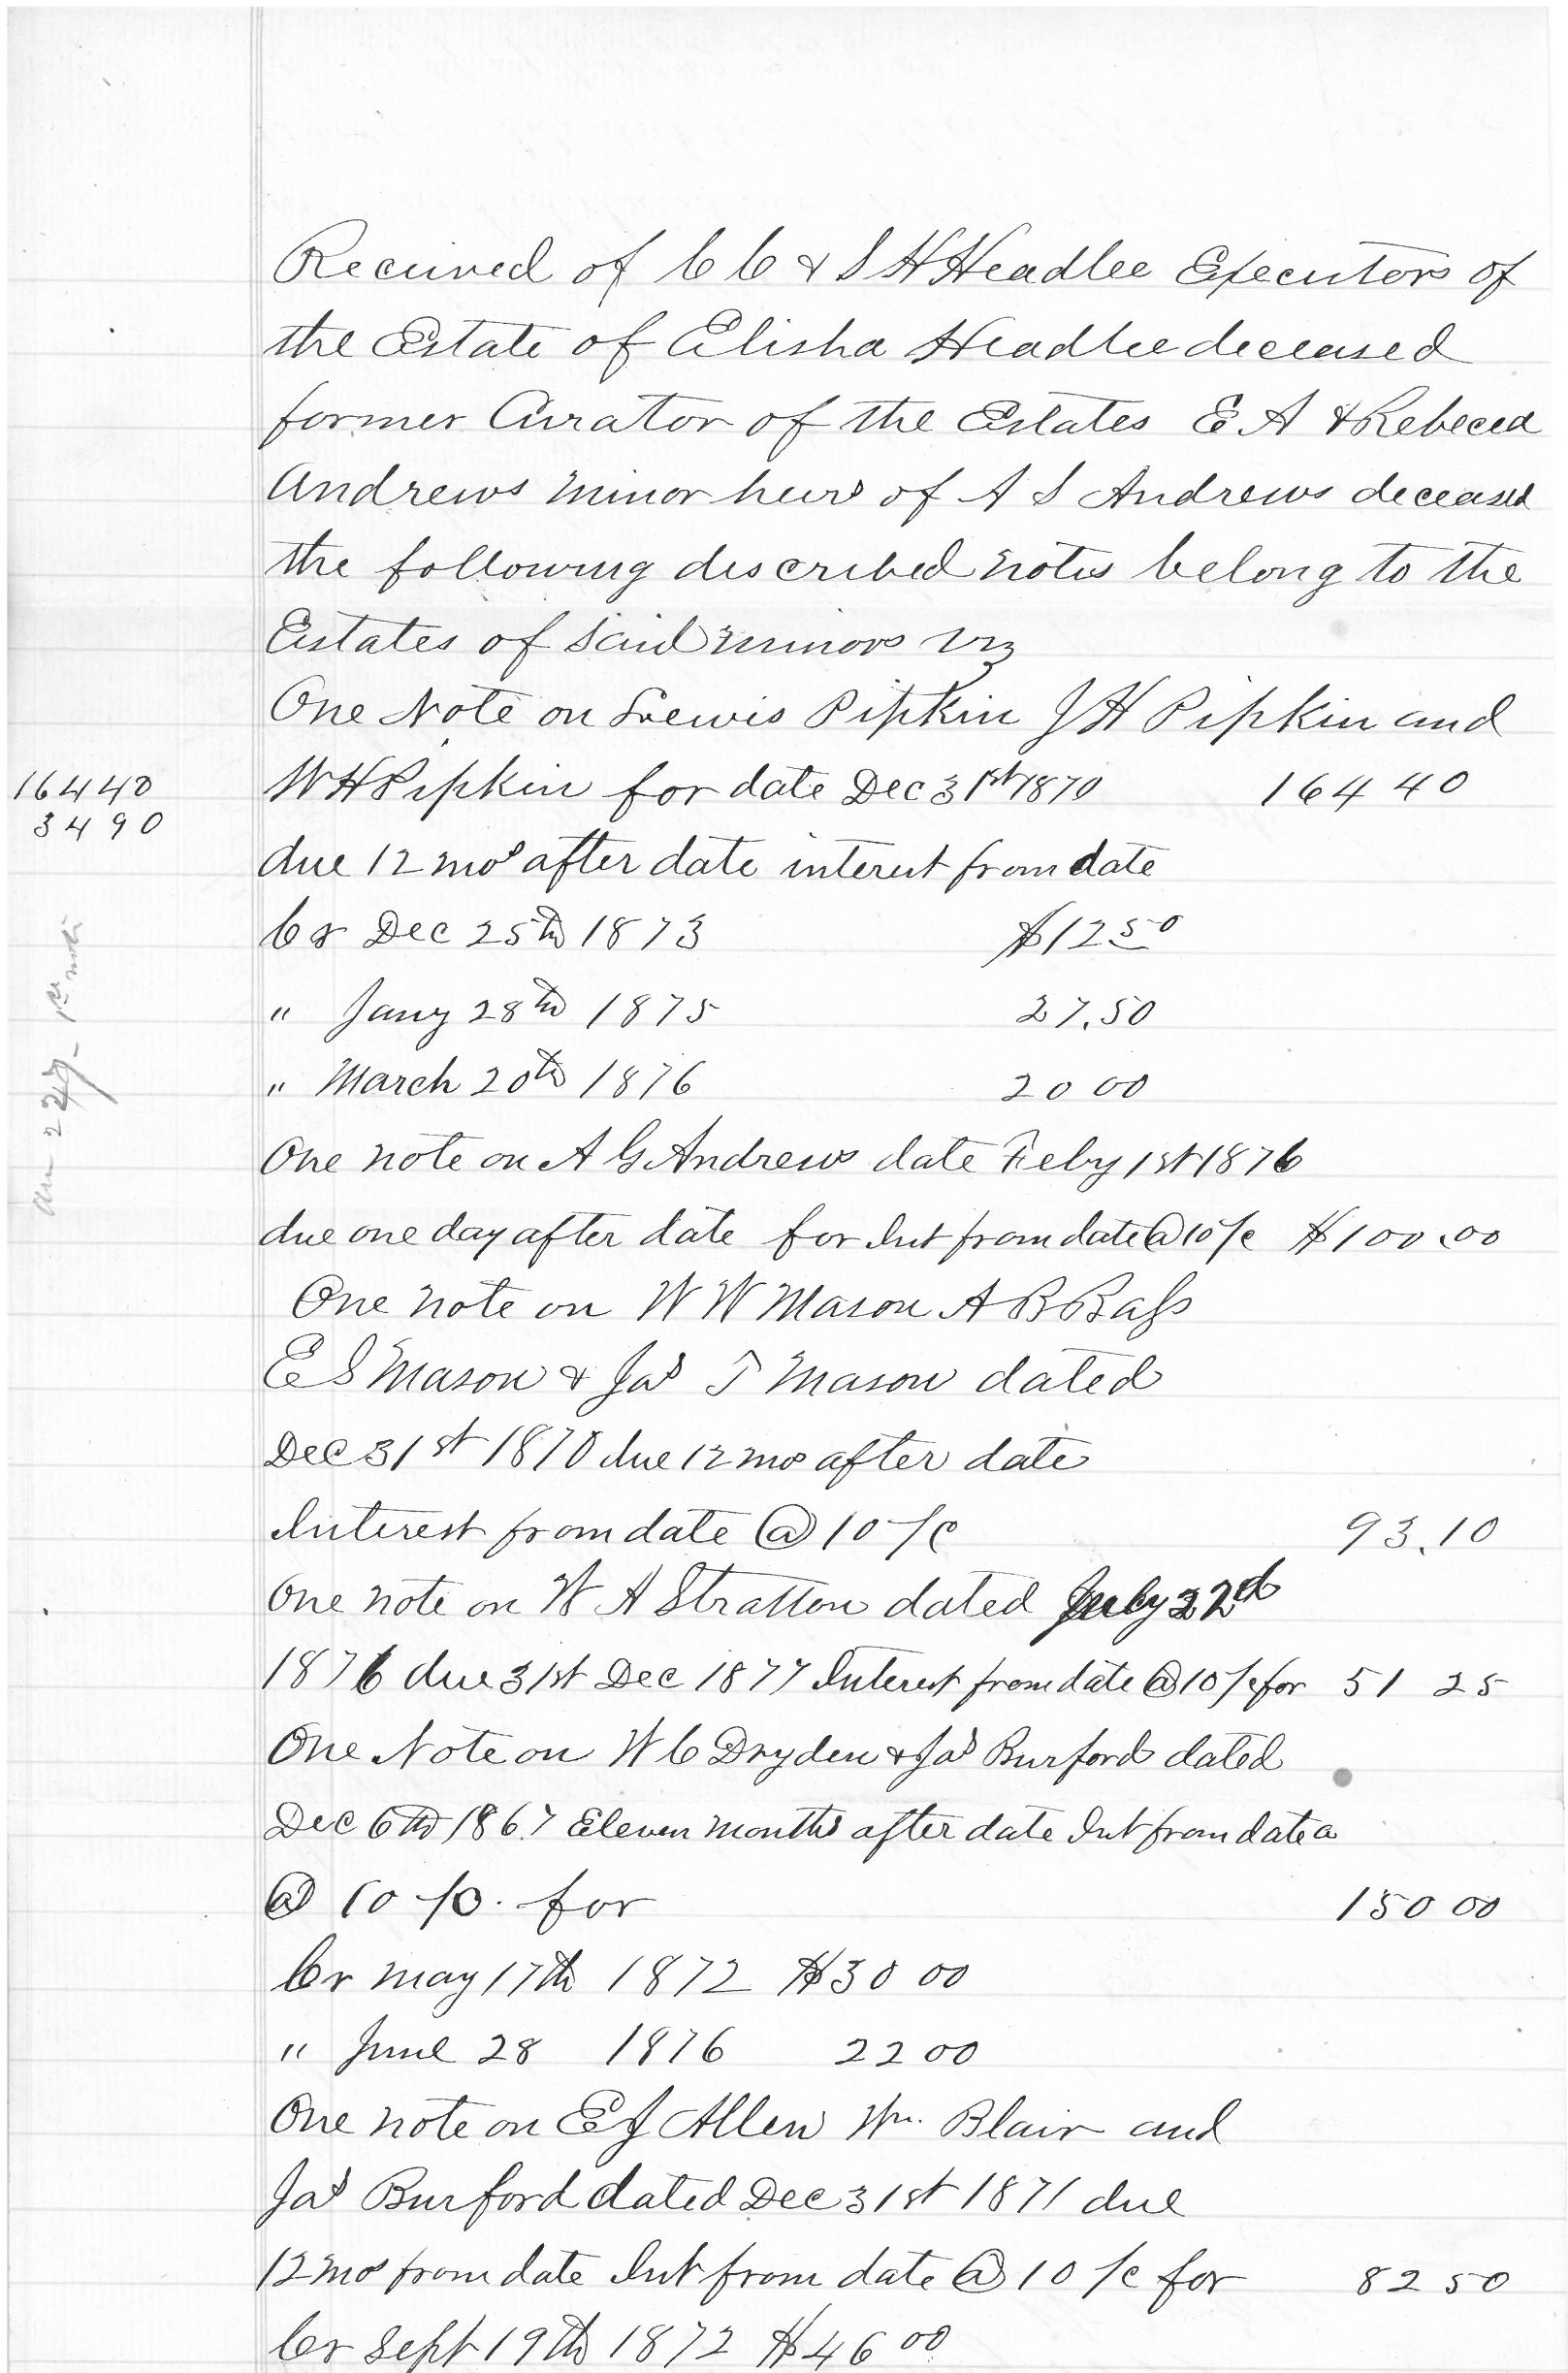 Recieved of C C & S H Headlee Executors of
the Estate of Elisha Headlee deceased
former Curator of the Estates E A & Rebecca
Andrews minor heirs of A S Andrews deceased
the following described notes belong to the
Estates of said minors viz
One Note on Lewis Pipkin J H Pipkin and
W H Pipkin for date Dec 31st 1870 164 40
164 40
34 90
due 12 mos after date interest from date
Cr Dec 25th 1873 $12 50
" Jany 28th 1875 27.50
" March 20th 1876 20 00
One note on A G Andrews date Feby 1st 1876
due one day after date for Int from date @ 10 /c $100.00
One note on W W Mason A B Bass
E S Mason & Jas T Mason dated
Dec 31st 1870 due 12 mos after date
Interest from date @ 10 /c 93.10
One note on W A Stratton dated July 22d
1876 due 31st Dec 1877 Interest from date @ 10 /c for 51 25
One Note on W C Dryden & Jas Burford dated
Dec 6th 1867 Eleven months after date Int from date a
@ 10 /c. for 150 00
Cr May 17th 1872 $30 00
" June 28 1876 22 00
One note on E J Allen Wm. Blair and
Jas Burford dated Dec 31st 1871 due
12 mos from date Int from date @ 10 /c for 82 50
Cr Sept 19th 1872 $46 00